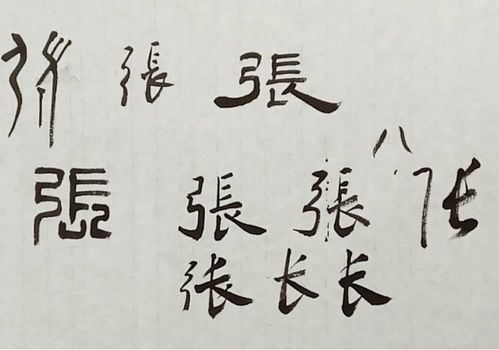 張 張
八
張 張 張 张
张 长 长